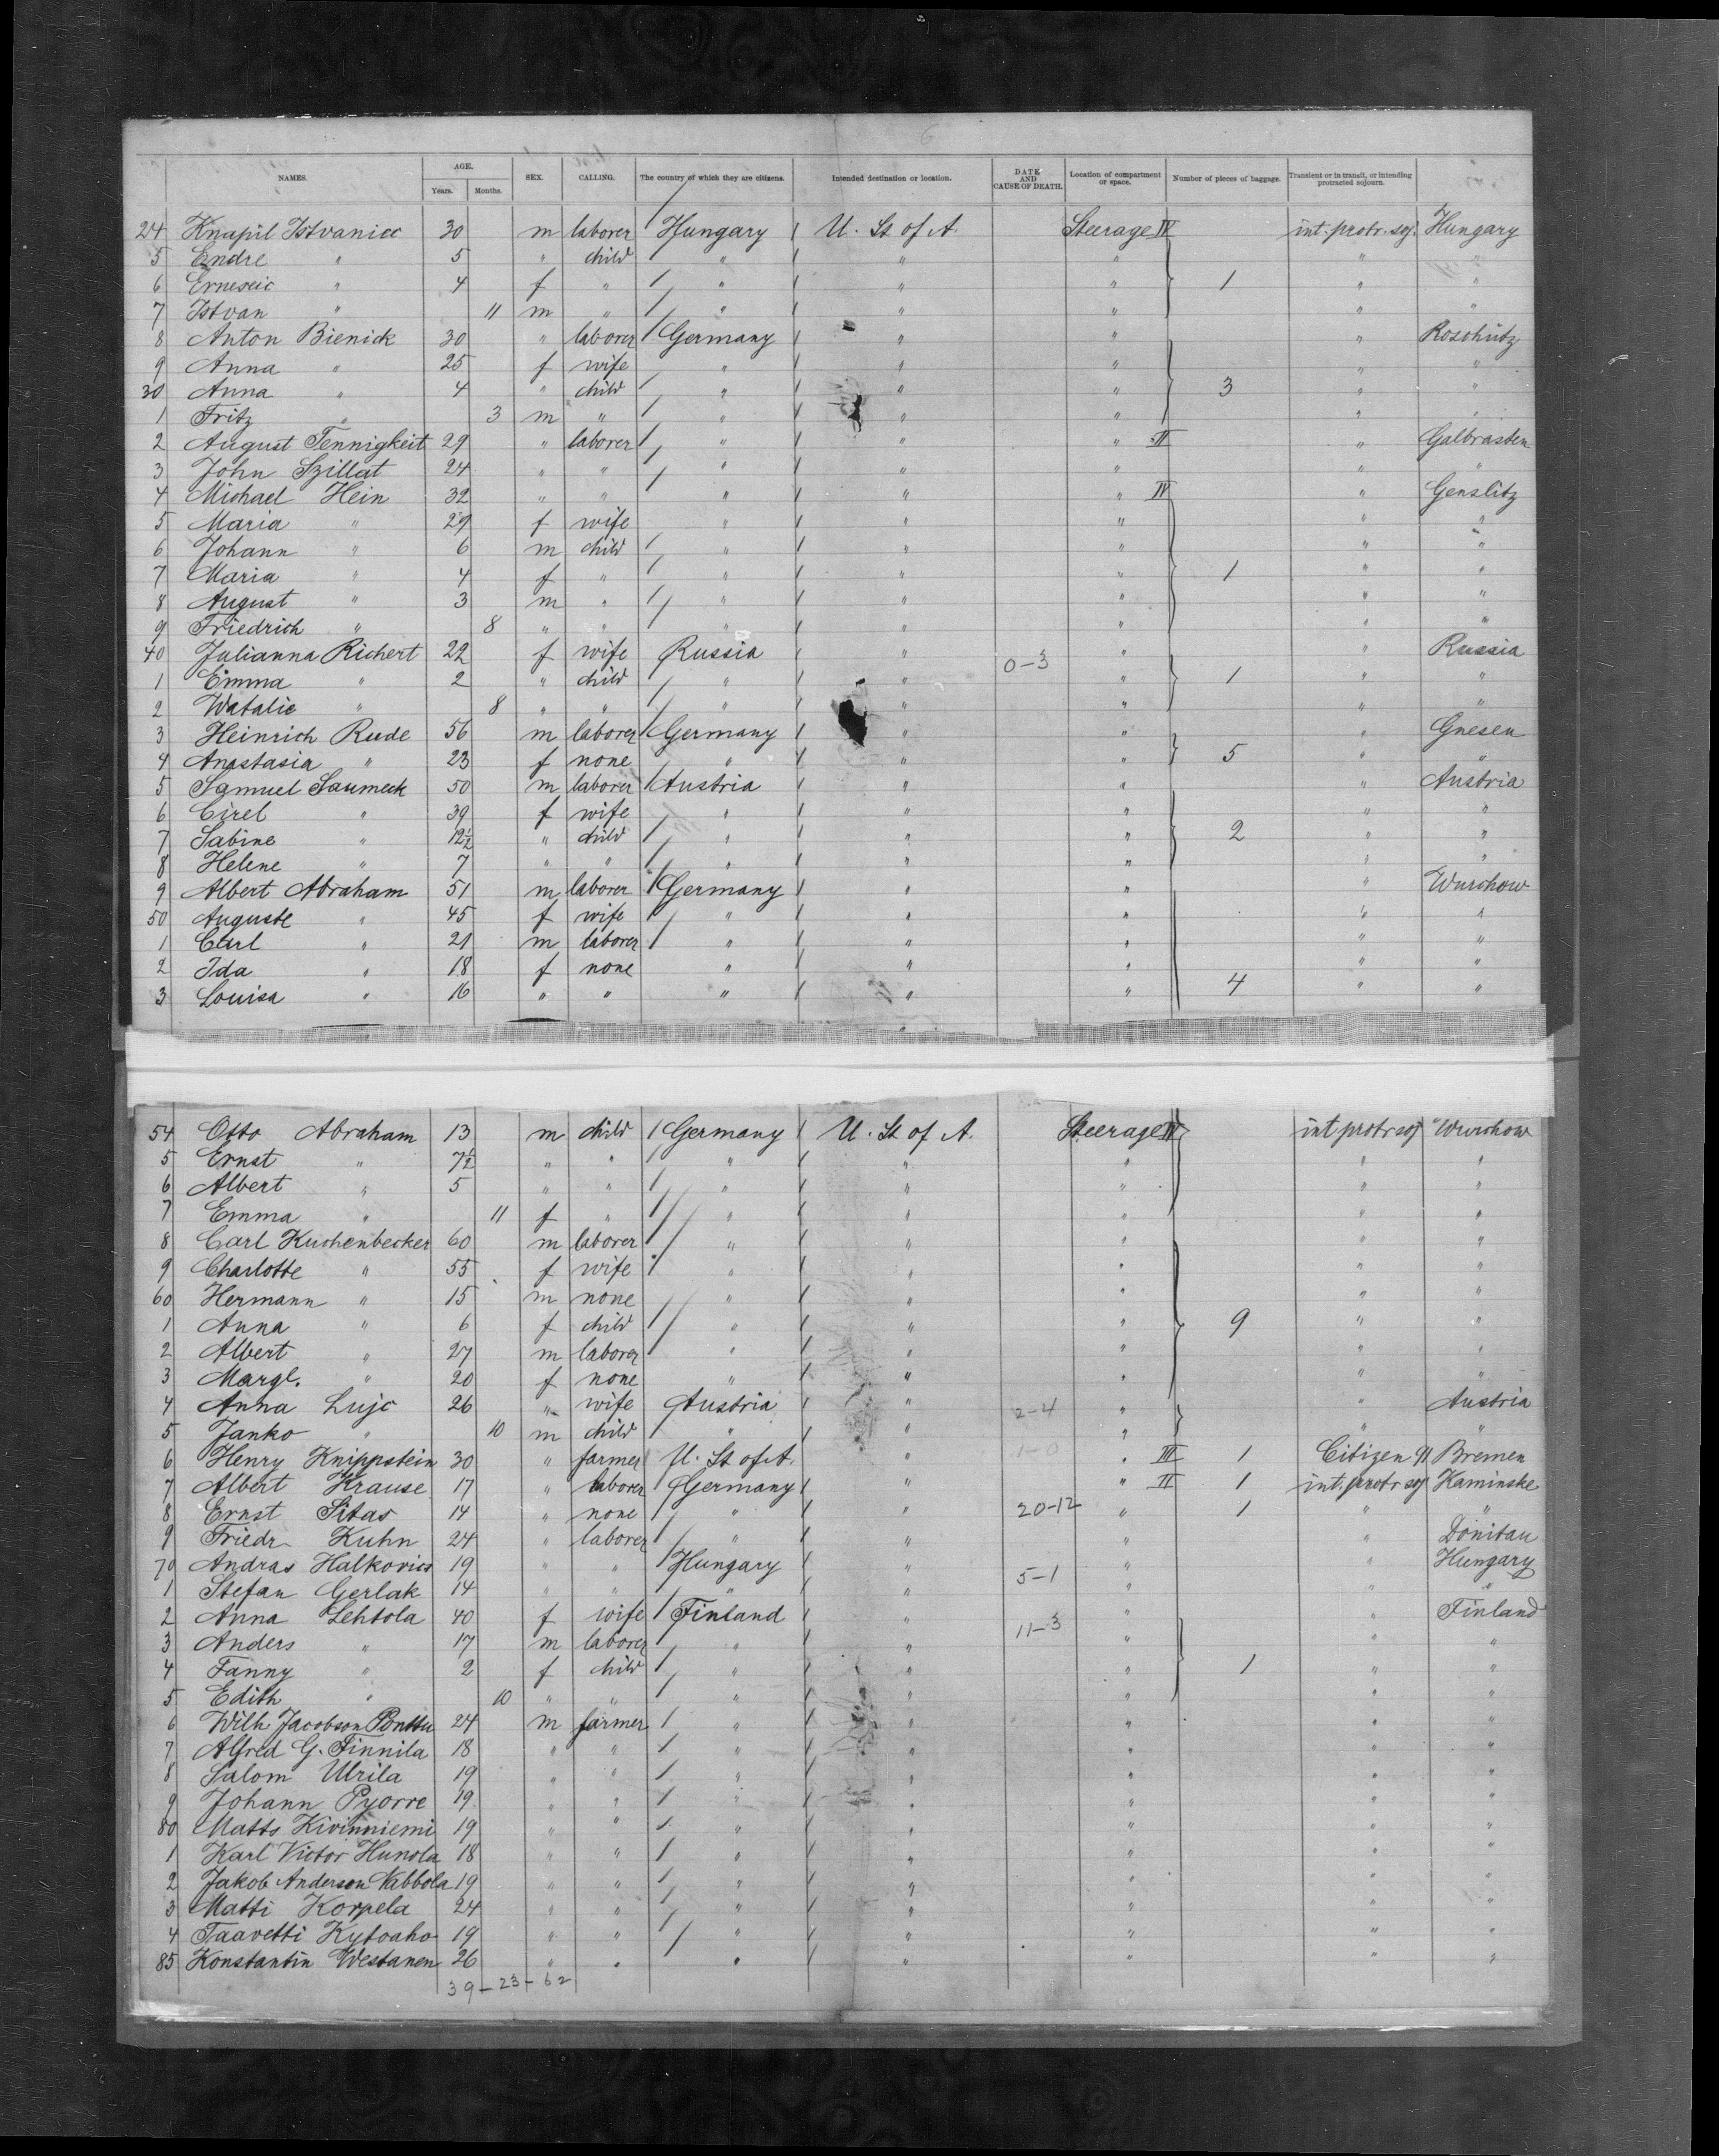 6
NAMES. AGE. SEX. CALLING. The country of which they are citizens. Intended destination or location. DATE AND CAUSE OF DEATH. Location of compartment or space. Number of pieces of baggage. Transient or in transit, or intending protracted sojourn.
Years. Months.
24 Knapil Istvanicc 30 m laborer Hungary U. St of A. Steerage IV int. protr. soj. Hungary
5 Endre " 5 " child " " " " "
6 Erneseic " 4 f " " " " 1 " "
7 Istvan " 11 m " " " " " "
8 Anton Bienick 30 " laborer Germany " " " Roschütz
9 Anna " 25 f wife " " " " "
30 Anna " 4 " child " " " 3 " "
1 Fritz " 3 m " " " " " "
2 August Tennigkeit 29 " laborer " " " II " Galbrasten
3 John Szillat 24 " " " " " " "
4 Michael Hein 32 " " " " " IV " Genslitz
5 Maria " 29 f wife " " " " "
6 Johann " 6 m child " " " " "
7 Maria " 4 f " " " " 1 " "
8 August " 3 m " " " " " "
9 Friedrich " 8 " " " " " " "
40 Julianna Richert 22 f wife Russia " 0-3 " " Russia
1 Emma " 2 " child " " " 1 " "
2 Watalie " 8 " " " " " " "
3 Heinrich Rude 56 m laborer Germany " " " Gnesen
4 Anastasia " 23 f none " " " 5 " "
5 Samuel Saumeck 50 m laborer Austria " " " Austria
6 Cirel " 39 f wife " " " " "
7 Sabine " 12½ " child " " " 2 " "
8 Helene " 7 " " " " " " "
9 Albert Abraham 51 m laborer Germany " " " Wurchow
50 Auguste " 45 f wife " " " " "
1 Carl " 21 m laborer " " " " "
2 Ida " 18 f none " " " " "
3 Louisa " 16 " " " " " 4 " "
54 Otto Abraham 13 m child Germany U. St of A. Steerage IV int protr soj Wurchow
5 Ernst " 7½ " " " " " " "
6 Albert " 5 " " " " " " "
7 Emma " 11 f " " " " " "
8 Carl Kuchenbecker 60 m laborer " " " " "
9 Charlotte " 55 f wife " " " " "
60 Hermann " 15 m none " " " " "
1 Anna " 6 f child " " " 9 " "
2 Albert " 27 m laborer " " " " "
3 Margl. " 20 f none " " " " "
4 Anna Lujc 26 " wife Austria " 2-4 " " Austria
5 Janko " 10 m child " " " " "
6 Henry Knippstein 30 " farmer U. St of A. " 1-0 " III 1 Citizen Bremen
7 Albert Krause 17 " laborer Germany " " II 1 int. protr soj Kaminske
8 Ernst Sitas 14 " none " " 20-12 " 1 " "
9 Friedr. Kuhn 24 " laborer " " " " Dönitau
70 Andras Halkovics 19 " " Hungary " " " Hungary
1 Stefan Gerlak 14 " " " " 5-1 " " "
2 Anna Lehtola 40 f wife Finland " " " Finland
3 Anders " 17 m laborer " " 11-3 " " "
4 Fanny " 2 f child " " " 1 " "
5 Edith " 10 " " " " " " "
6 Wilh. Jacobson Ponttu 24 m farmer " " " " "
7 Alfred G. Finnila 18 " " " " " " "
8 Salom Ulrila 19 " " " " " " "
9 Johann Pyorre 19 " " " " " " "
80 Matts Kivinniemi 19 " " " " " " "
1 Karl Victor Hunola 18 " " " " " " "
2 Jakob Anderson Kibbola 19 " " " " " " "
3 Matti Korpela 24 " " " " " " "
4 Taavetti Kytoaho 19 " " " " " " "
85 Konstantin Westanen 26 " " " " " " "
39-23-62